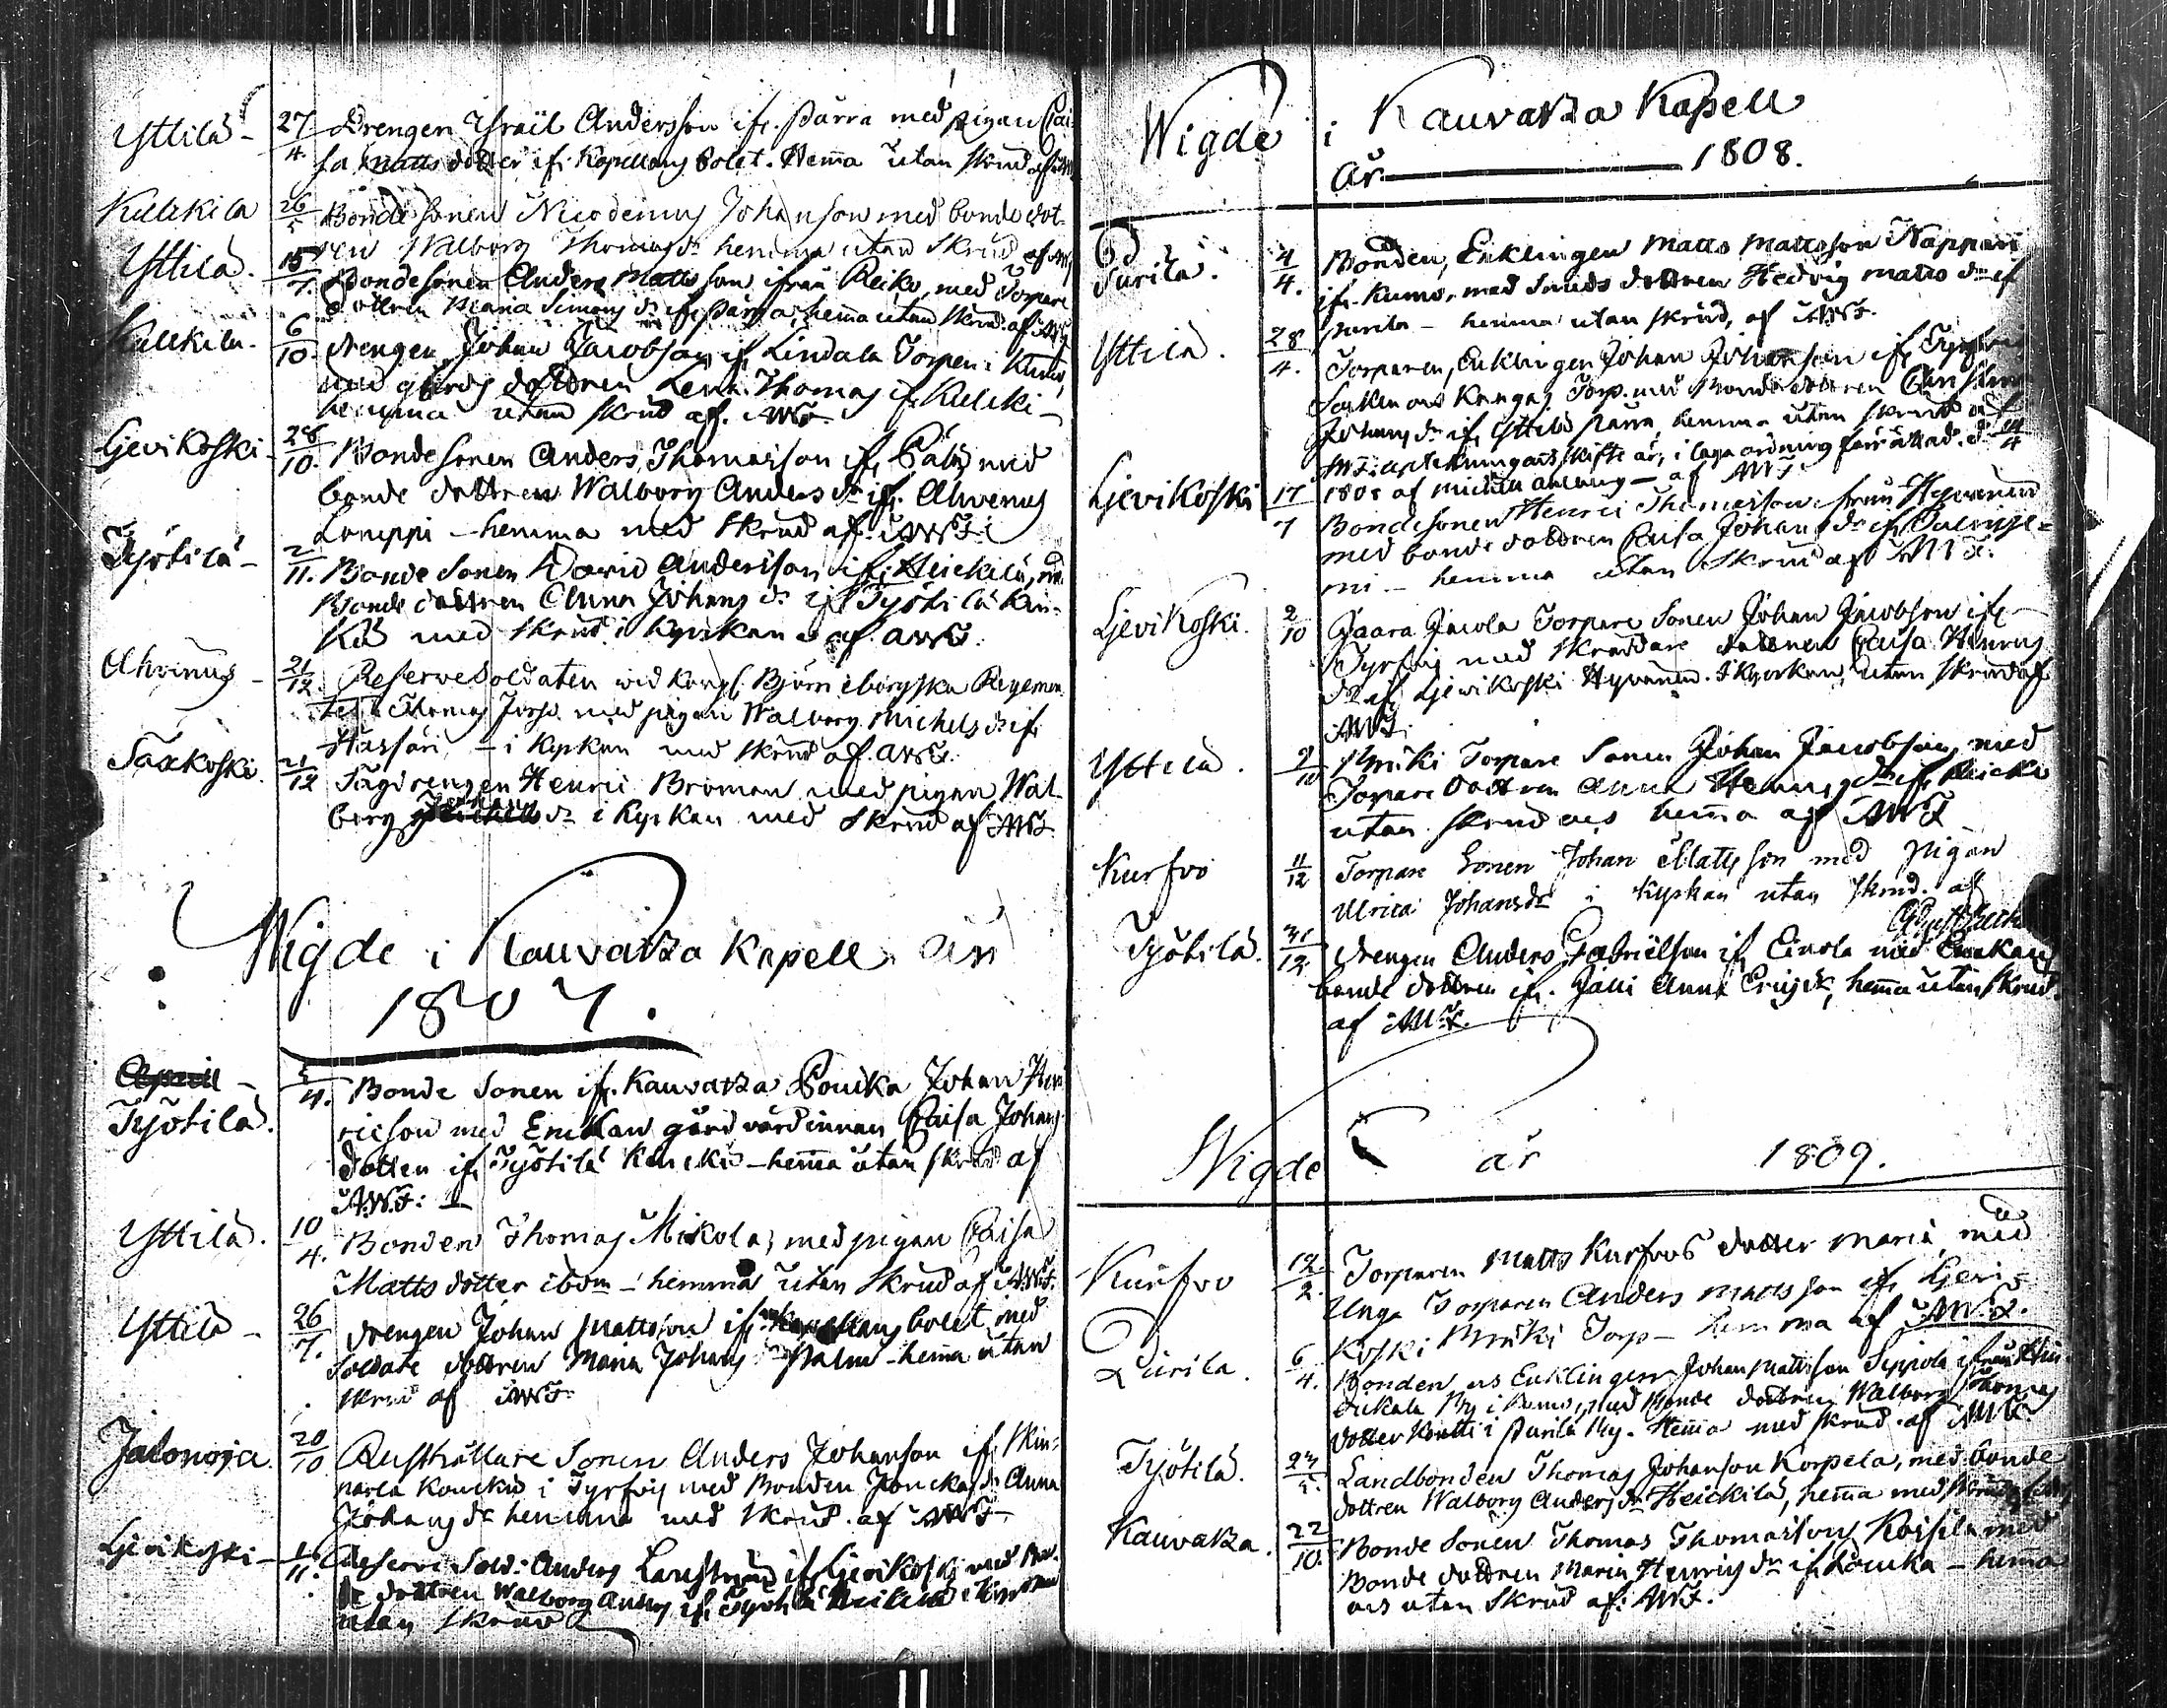 Yttilä - 27/4 Drengen Israël Andersson ifr. Parra med pigan Cai-
sa Matts dotter ifr. Kapellans bolet. Hema utan skrud af AWF
Kulckila 26/5 Bonde sonen Nicodemus Johanson med bonde dot-
ren Walborg Thomas dr hemma utan skrud af AWF
Yttilä. 15/7. Bondesonen Anders Mattsson ifrån Reiko, med Torpare
dottren Maria Simons dr ifr. Parra, hema utan skrud af AWF
Kulckila. 6/10. Drengen Johan Jacobson ifr Lindala Torpen i Kumo,
med gårds dottren Lena Thomas ifr Kulcki-
hemma utan skrud af. AWF.
Ljevikoski - 28/10. Bondesonen Anders Thomasson ifr. med
bonde dottren Walborg Anders dr ifr. Ahvenus
Loneppi - hemma med skrud af AWF.
Työtilä - 2/11. Bonde Sonen David Andersson ifr. Heickilä, med
Bonde dottren Anna Johans dr ifr Työtilä Kau-
ka med skrud i kyrkan af AWF.
Ahvenus - 21/12. Reserve Soldaten wid Kongl. Björneborgska Regemen-
tet Thomas med pigan Walborg Michels dr ifr
- i Kyrkan med skrud af AWF.
Säxkoski. 21/12 Sågdrengen Henric Broman med pigan Wal-
borg Johans dr i Kyrkan med skrud af AWF.
Wigde i Kauvatza Kapell år
1807.
April -
Työtilä. 5/4. Bonde Sonen ifr. Kauvatza Pouka Johan Hen
ricson med Enckan gård värdinnan Caisa Johans
dotten ifr Työtilä Kaucko - hema utan skrud af
AWF: -
Yttilä. 10/4. Bonden Thomas Mikola, med pigan Caisa
Matts dotter ibdm - hemma utan skrud af AWF.
Yttilä - 26/7. Drengen Johan Mattsson ifr. Kapellans bolet med
Soldate dottren Maria Johans dr Palm - hema utan
skrud af AWF.
Jalonoja. 20/10 Rusthållare Sonen Anders Johanson ifr Skin-
narla Koucko i Tyrfvis med Bonden Jonckas dr Anna
Johans dr hemma med skrud af AWF -
Ljevikoski - 1/11. Reserve Sold: Anders ifr Ljevikoski med Bon-
de dottren Walborg Anders ifr Työtilä i Kyrkan
utan skrud
Wigde i Kauvatza Kapell
år 1808.
Purila. 4/4. Bonden, Enklingen Matts Mattsson Näppäri
ifr. Kumo, med Smeds dottren Hedvig Matts dr ifr
Purila - hemma utan skrud, af AWF.
Yttilä. 28/4. Torparen, Enklingen Johan Johanson ifr Tyrfvis
Socken och Kangas Torp. med Bonde dottren Christina
Johans dr ifr Yttilä Parra, hemma utan skrud af
AWF: skifte är, i laga ordning förrättad d: 14/4
1808 af Michel - af AWF
Ljevikoski 17/7 Bondesonen Henric Thomasson från Hyvenen
med bonde dottren Caisa Johans dr ifr
mi - hemma utan skrud af AWF.
Ljevikoski. 2/10 Gaara Jacola Torpare Sonen Johan Jacobson ifr
Tyrfvis med skreddare dottren Caisa Henrics
dr ifr Ljevikoski Hyvenen. I Kyrkan, utan skrud af
AWF.
Yttilä. 9/10 Torpare Sonen Johan Jacobson, med
Torpare dottren Anna Henrics dr ifr Reicko
utan skrud och hema af AWF
Kurfvo 11/12 Torpare Sonen Johan Mattsson med pigan
Ulrica Johansdr i Kyrkan utan skrud. af
Työtilä. 31/12. Drengen Anders Gabrielson ifr Einola med Enckan
bonde dottren ifr. Jalli Anna Ericsdr, hema utan skrud.
af AWF.
Wigde år 1809.
Kurfvo 12/2. Torparen Matts Kurfvos dotter Maria, med
Unga Torparen Anders Mattsson ifr Ljevi-
koski Torp - hemma af AWF.
Purila. 6/4. Bonden och Enklingen Johan Mattsson Seppola ifrån
By i Kumo, med Bonde dottren Walborg Thomas
dotter Kontti i Purila By. Hema med skrud af AWF
Työtilä. 23/5. Landbonden Thomas Johanson Korpela, med bonde
dottren Walborg Anders dr Heickilä, hema med
Kauvatza. 22/10. Bonde Sonen Thomas Thomasson Koisila med
Bonde dottren Maria Henrics dr ifr Pouka - hema
och utan skrud af: AWF.